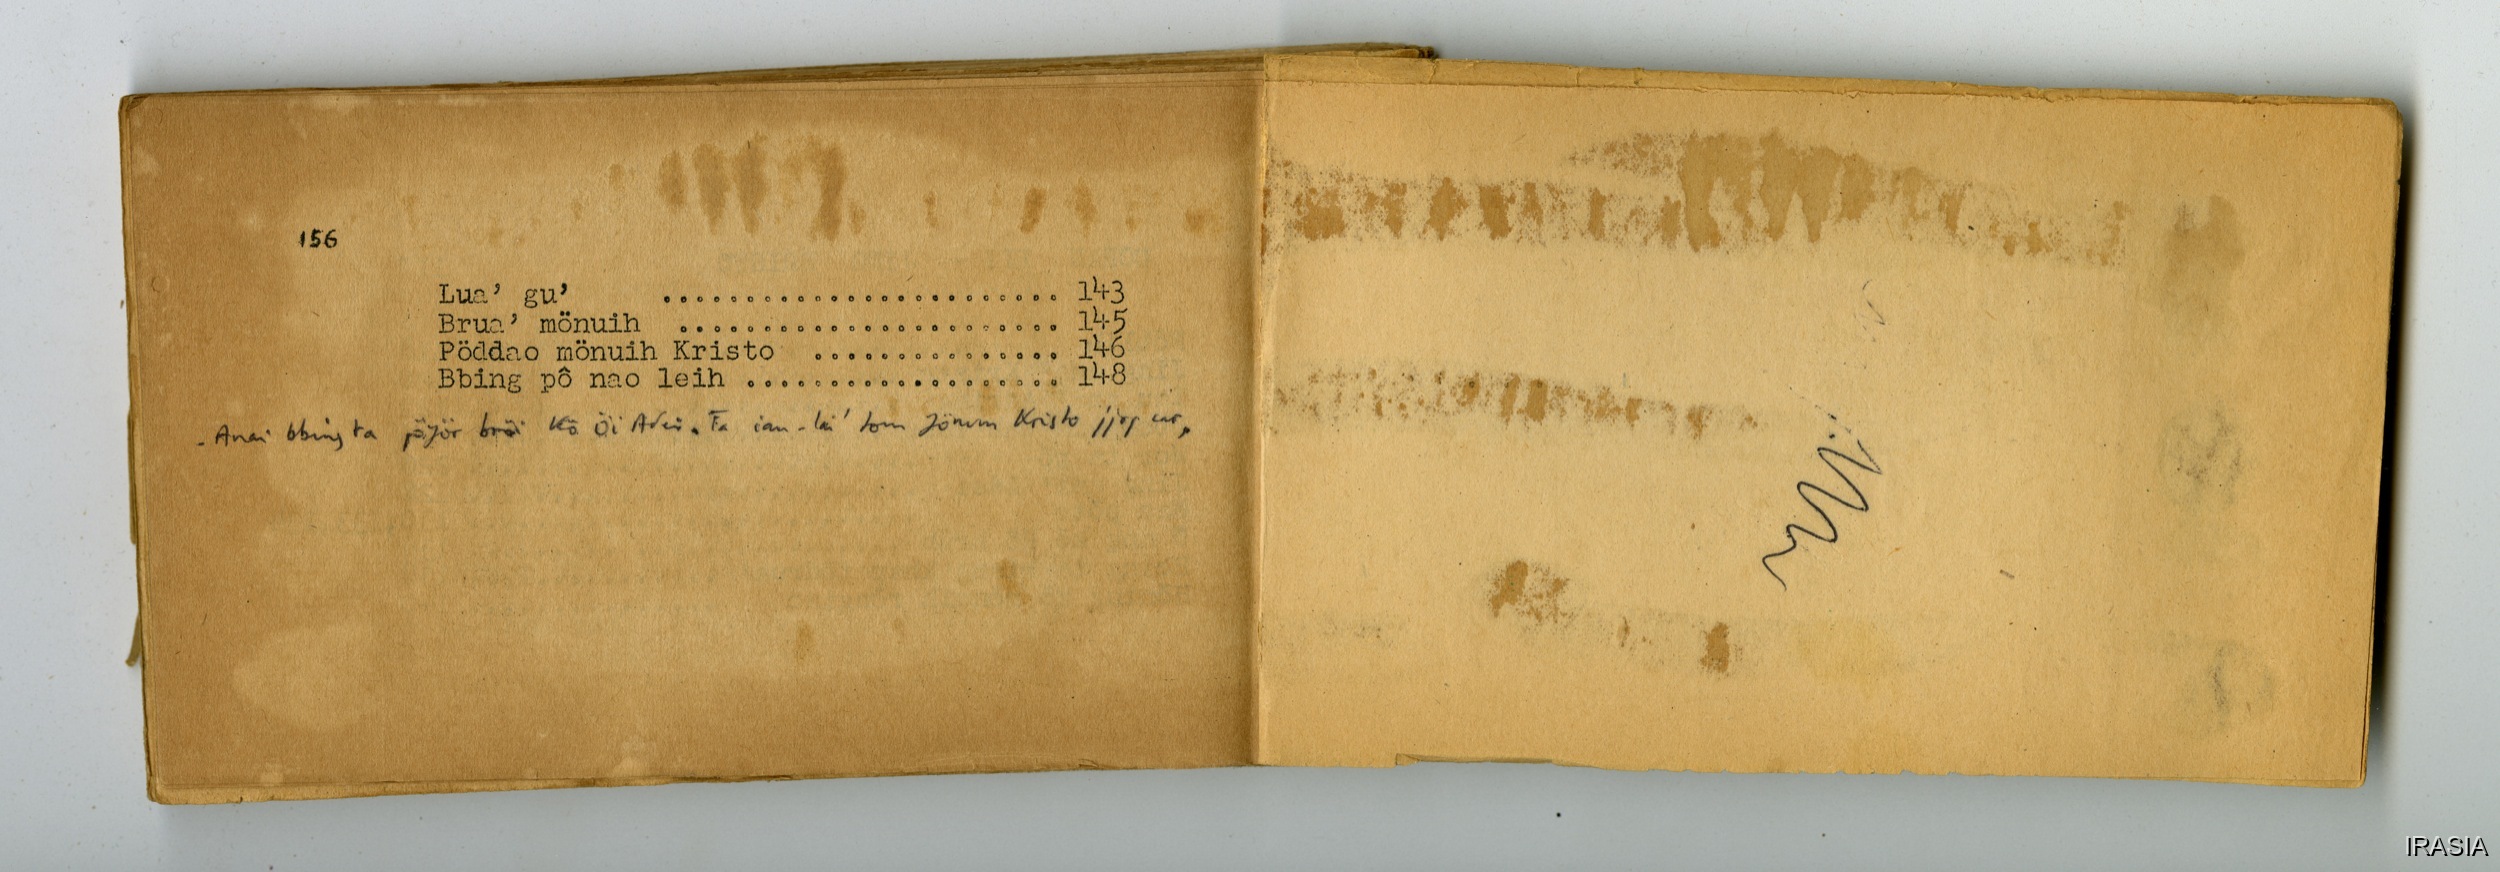 156
Lua' gu' ........................ 143
Brua' mönuih ....................... 145
Pöddao mönuih Kristo ............... 146
Bbing pô nao leih ................... 148
- Anai bbing ta pöjör kö Öi Adei. Ta tom Jönum Kristo
IRASIA